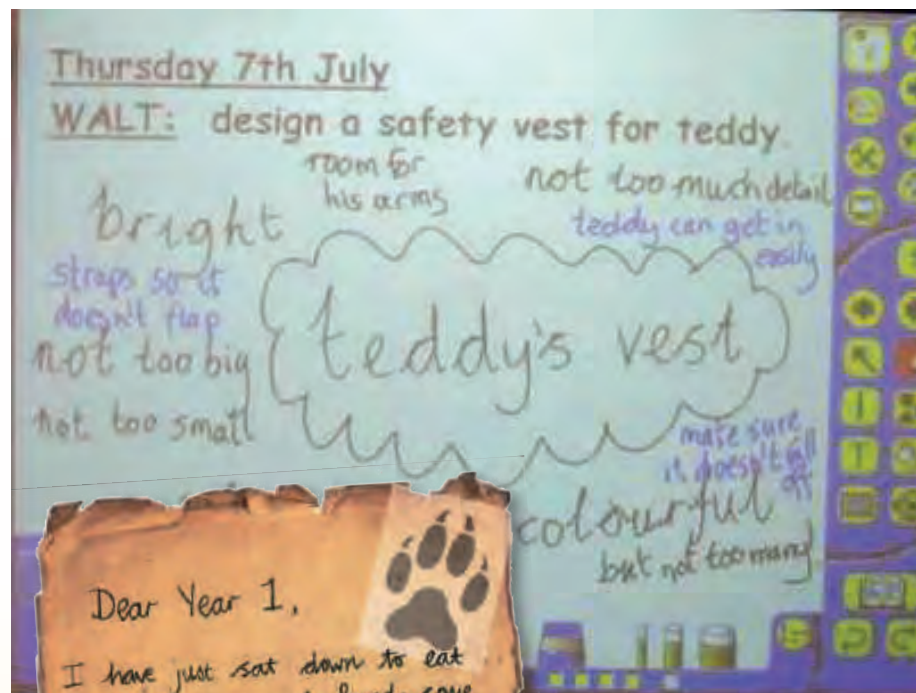 Thursday 7th July
WALT: design a safety vest for teddy.
room for
his arms
not too much detail
bright
teddy can get in
easily
straps so it
doesn't flap
teddy's vest
not too big
not too small
make sure
it doesn't fall
off
colourful
but not too many
Dear Year 1,
I have just sat down to eat